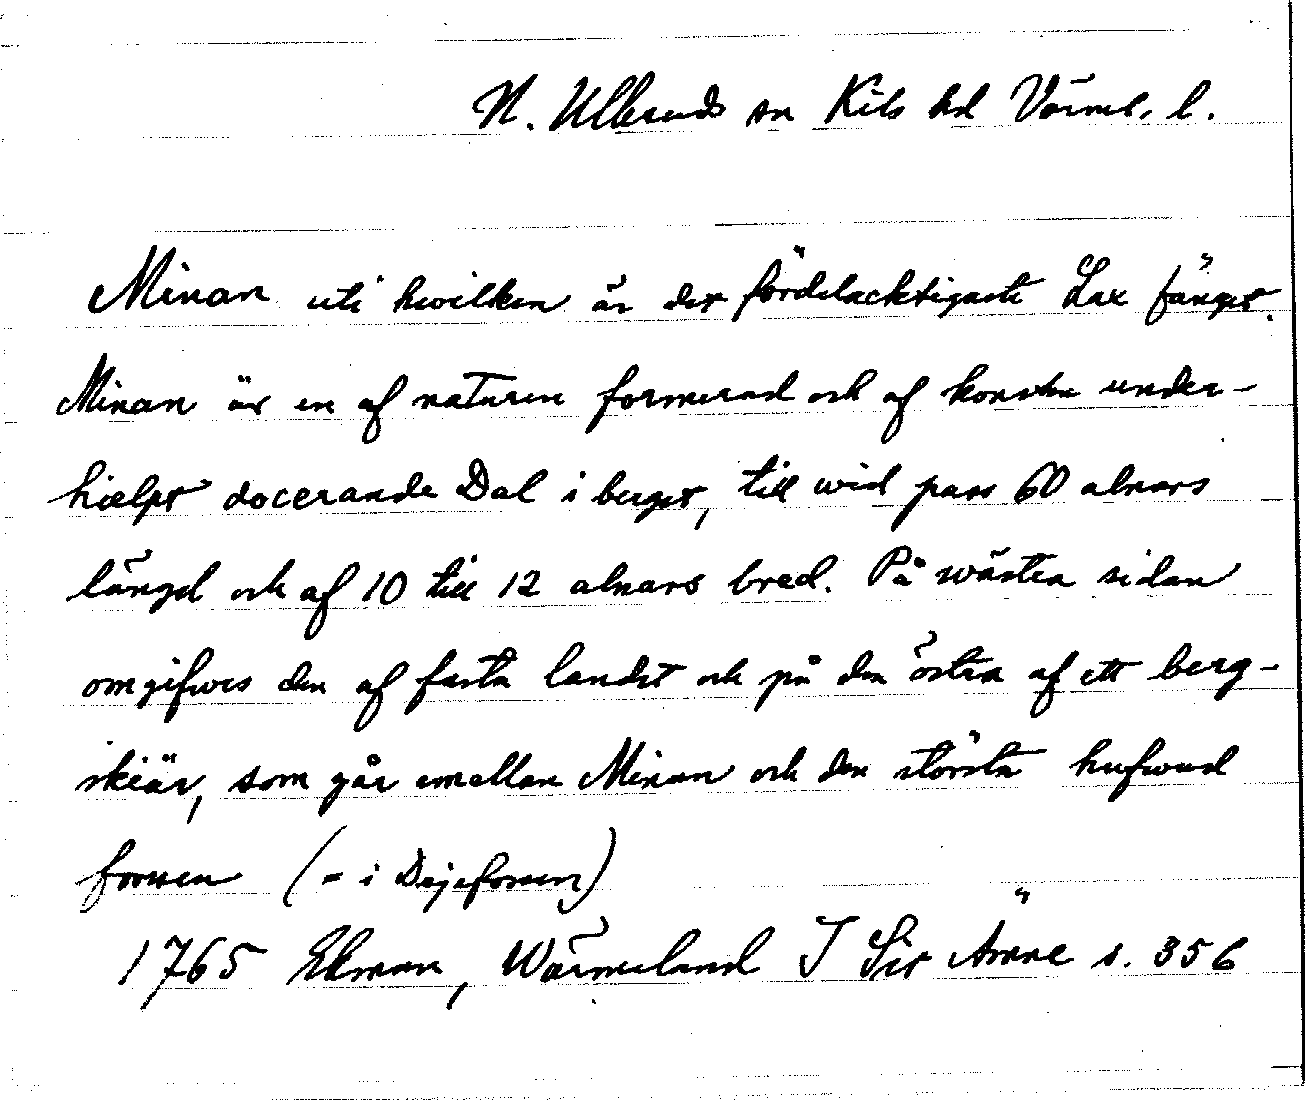 N. Ullerud sn Kils hd Värml. l.
Minan uti hwilken är det fördelacktigaste Lax fänget.
Minan är en af naturen formerad och af konsten under-
hiælpt docerande Dal i berget, till wid pass 60 alnars
längd och af 10 till 12 alnars bred. På wästra sidan
omgifwes den af fasta landet och på den östra af ett berg-
skiär, som går emellan Minan och den största hufwud
forssen (= i Dejeforsen)
1765 Ekman, Wärmeland I Sit Ämne s. 356